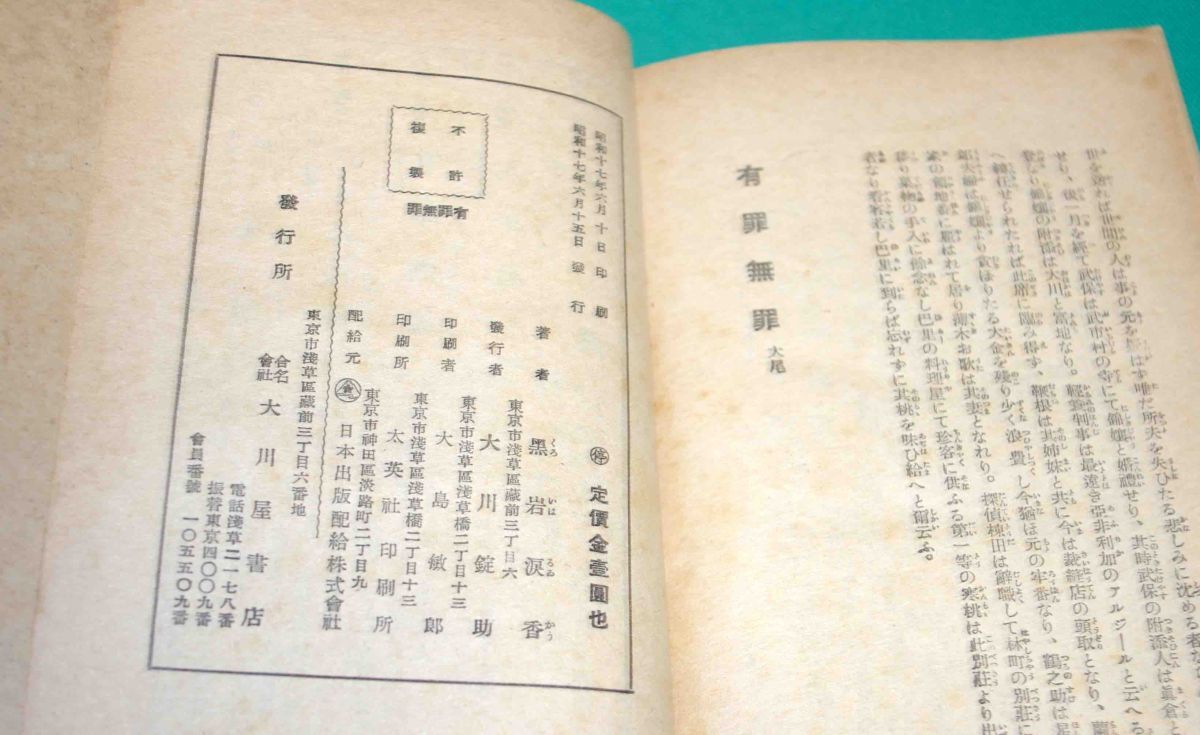 世を逃れば世間の人は事の元を
所夫を失ひたる悲しみに沈める者
せり、後一月を經て武保は武市村の寺にて錦孃と婚禮せり、其時武保の附添人は眞倉と
錦孃の附添は大川と富地なり。輕擧判事は最遠き亞非利加のアルジールと云へる
へ轉任せられたれば此席に臨み得ず、鞍根は其姉妹と共に今は裁縫店の頭取となり、
錦孃より貰はりたる大金を殘り少く浪費し今猶は元の牢番なり、鶴之助は
家の領地番に雇はれて居り湖木お歌は其妻となれり。探偵棟田は辭職して林町の別莊に
移り菓物の手入に餘念なし巴里の料理屋にて珍客に供ふる第一等の寒桃は此別莊より出
者なり看官若し巴里に到らば忘れずに其桃を味ひ給へと爾云ふ。
有罪無罪 大尾
停 定價金壹圓也
昭和十七年六月十日印刷
昭和十七年六月十五日發行
不許
複製
有罪無罪
著者 黑岩淚香
くろ いは るゐ かう
東京市淺草區藏前三丁目六
發行者 大川錠助
東京市淺草區淺草橋二丁目十三
印刷者 大島敏郎
東京市淺草區淺草橋二丁目十三
印刷所 太英社印刷所
東京市神田區淡路町二丁目九
配給元 日本出版配給株式會社
東京市淺草區藏前三丁目六番地
發行所 合名會社 大川屋書店
電話淺草二一七八番
振替東京四〇〇九番
會員番號 一〇五五〇九番